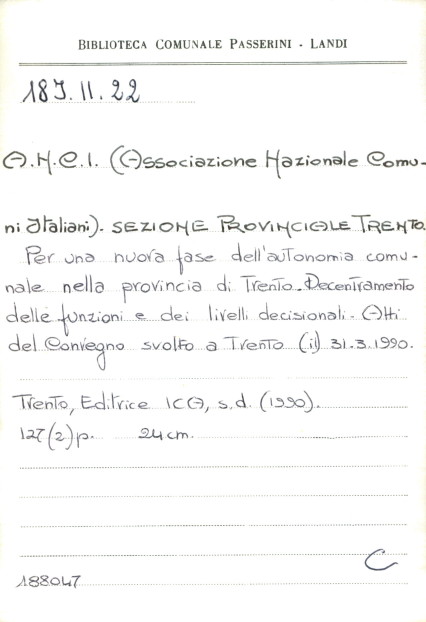 BIBLIOTECA COMUNALE PASSERINI - LANDI
18J.II.22
A.N.C.I. (Associazione Nazionale Comu-
ni Italiani). SEZIONE PROVINCIALE TRENTO.
Per una nuova fase dell'autonomia comu-
nale nella provincia di Trento. Decentramento
delle funzioni e dei livelli decisionali. Atti
del Convegno svolto a Trento (il) 31.3.1990.
Trento, Editrice ICA, s.d. (1990).
127(2)p. 24cm.
C
188047